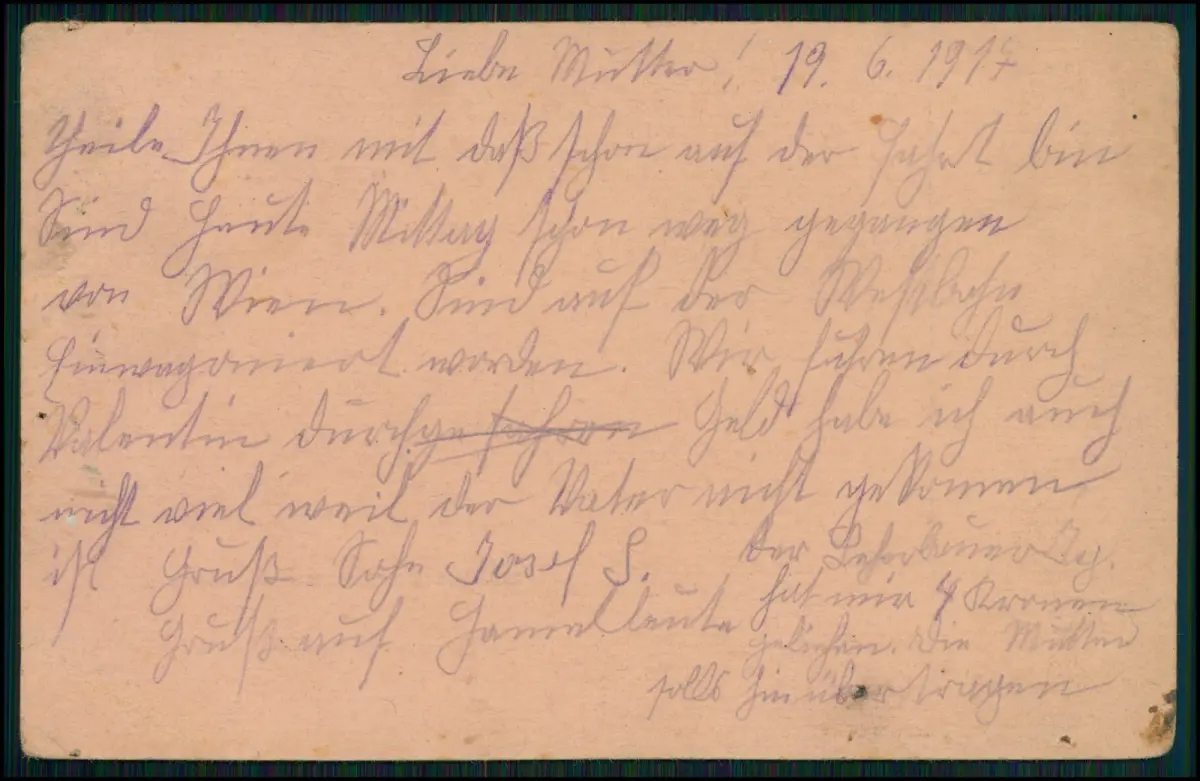 Liebe Mutter! 19. 6. 1917
theile Ihnen mit daß schon auf der Fahrt bin
Sind Heute Mittag schon weg gegangen
von Wien. Sind auf der Westbahn
Einwagoniert worden. Wir fuhren durch
Valentin durch gefahren Geld habe ich auch
nicht viel weil der Vater nicht gekomen
ist Gruß Sohn Josef S.
Gruß auf Hamelleute
der Lehrbauer Ig.
hat mir 4 Kronen
geliehen. Die Mutter
solls hinübertragen